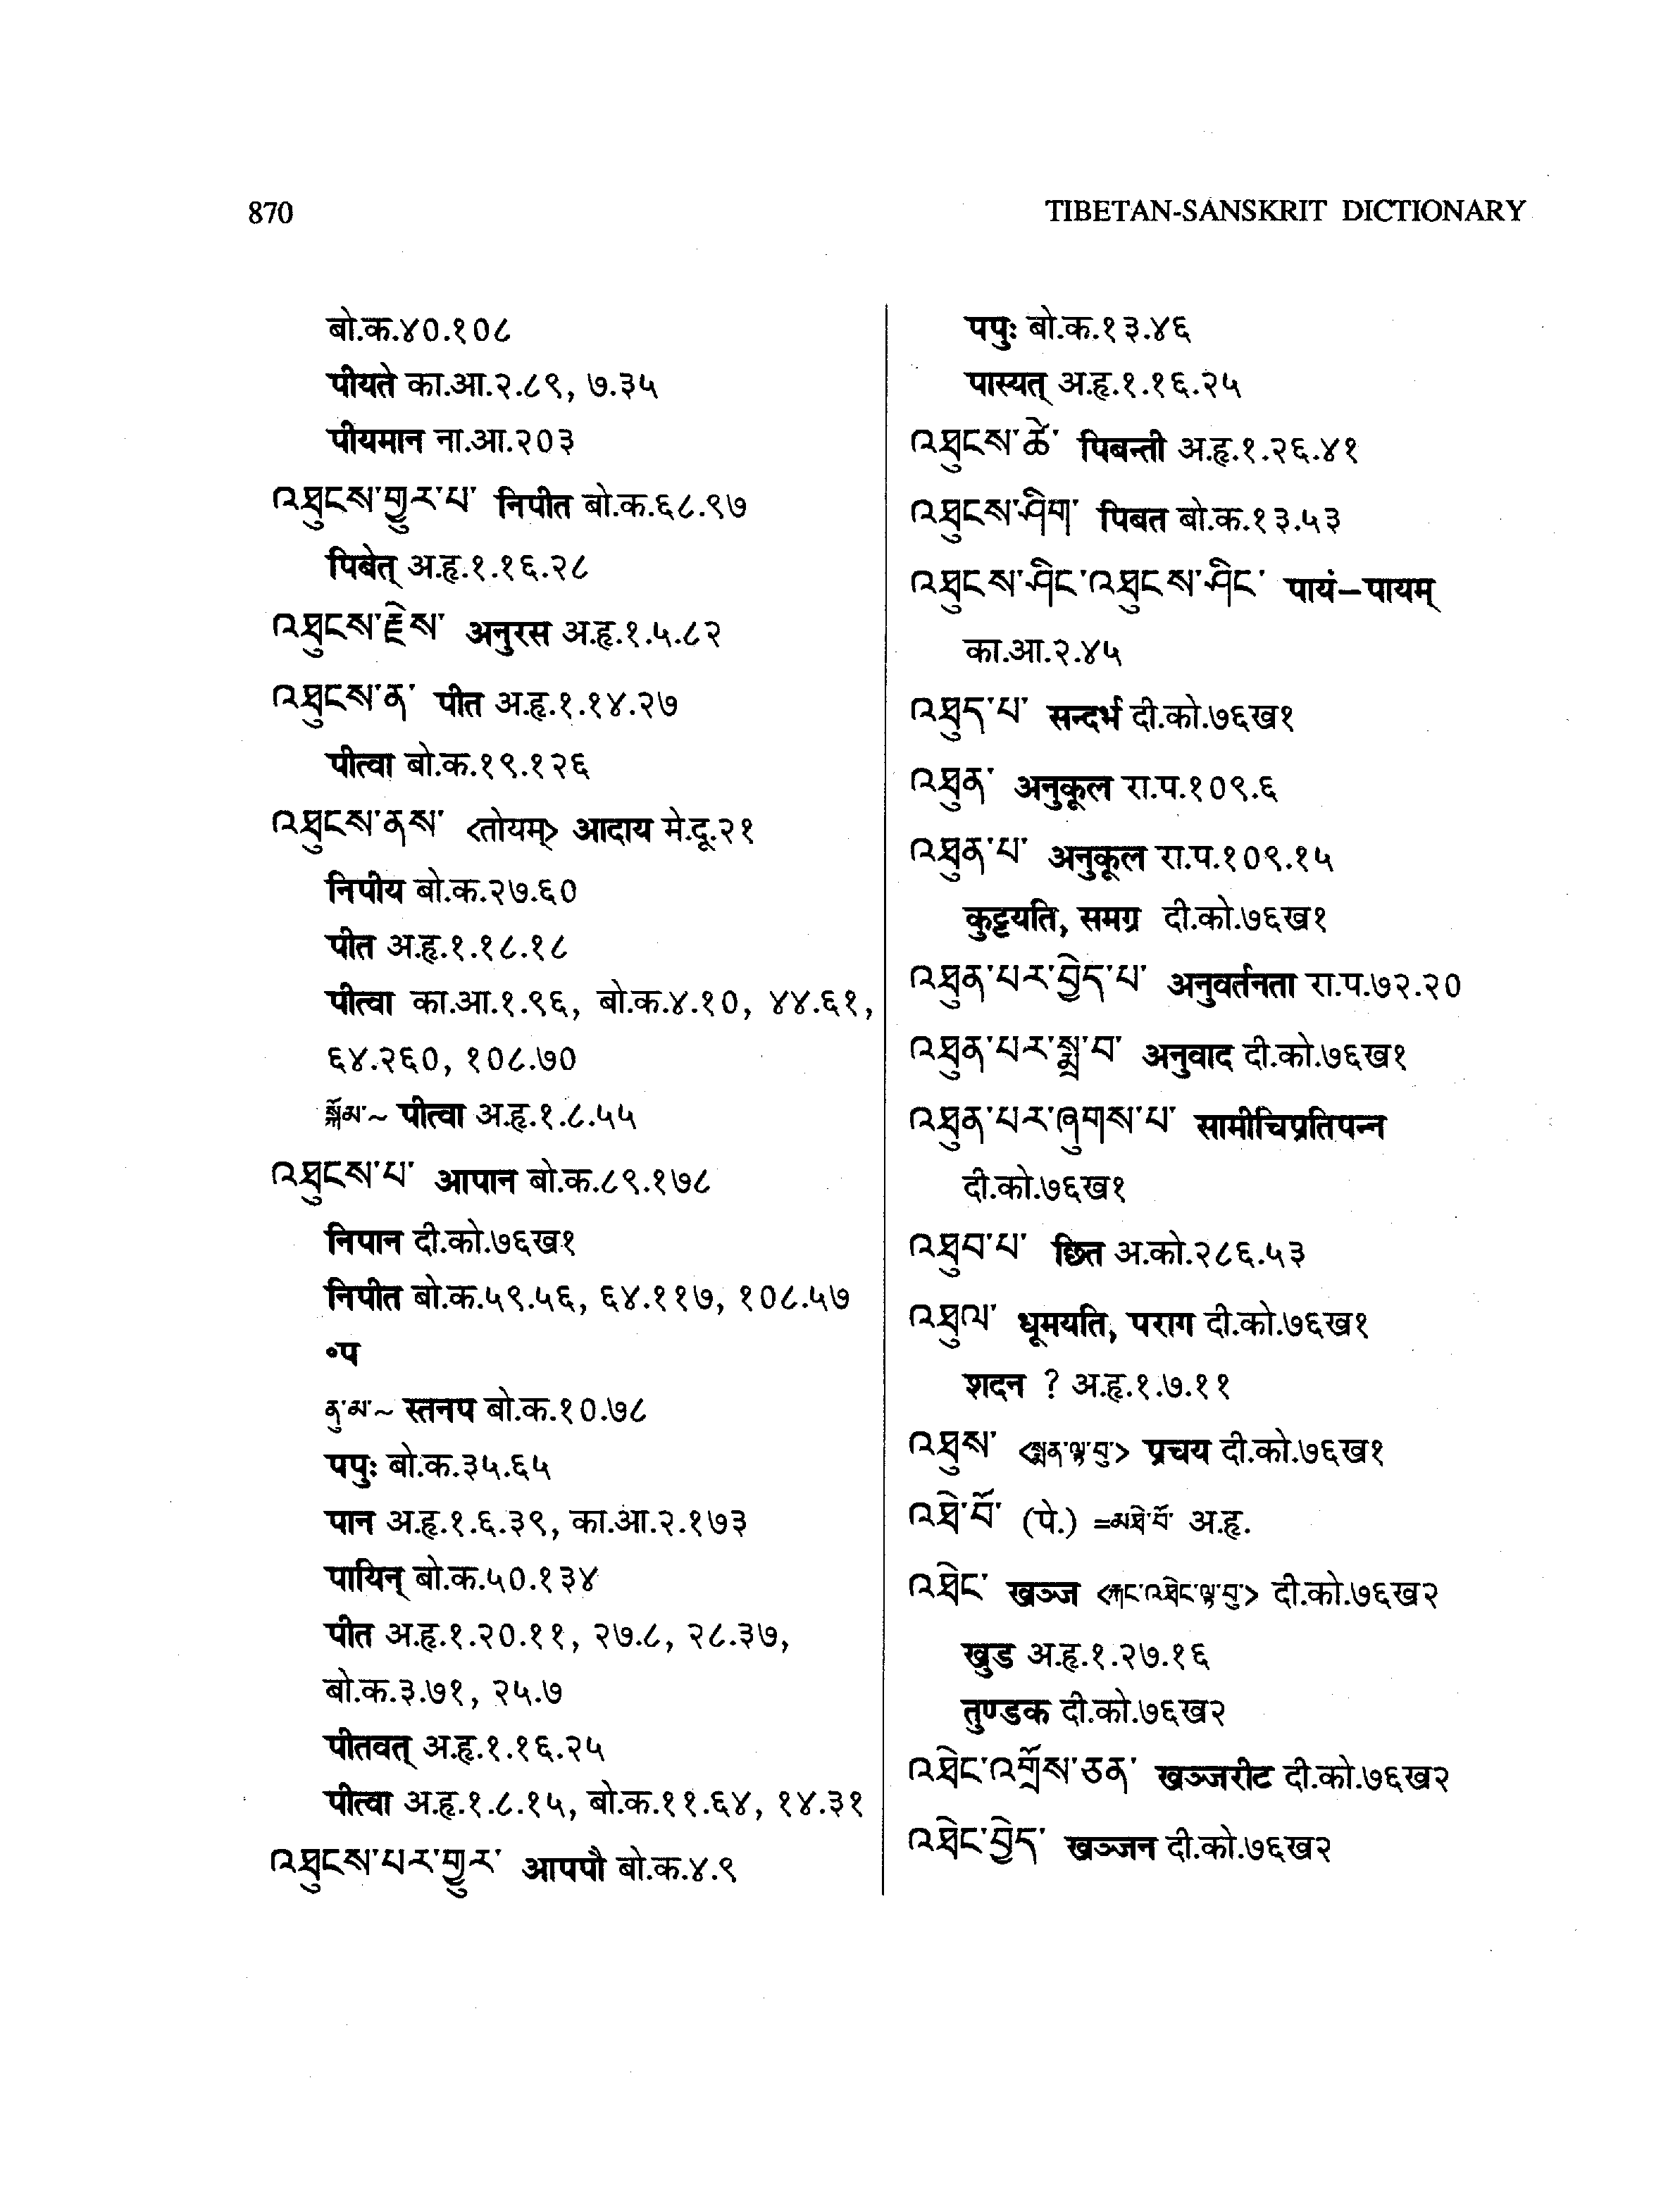 870
TIBETAN-SANSKRIT DICTIONARY
बो.क.४०.१०८
पीयते का.आ.२.८९, ७.३५
पीयमान ना.आ.२०३
འཐུངས་གྱུར་པ་ निपीत बो.क.६८.९७
पिबेत् अ.हृ.१.१६.२८
འཐུངས་རྗེས་ अनुरस अ.हृ.१.५.८२
འཐུངས་ན་ पीत अ.हृ.१.१४.२७
पीत्वा बो.क.१९.१२६
འཐུངས་ནས་ <तोयम्> आदाय मे.दू.२१
निपीय बो.क.२७.६०
पीत अ.हृ.१.१८.१८
पीत्वा का.आ.१.९६, बो.क.४.१०, ४४.६१,
६४.२६०, १०८.७०
སྐོམ་~ पीत्वा अ.हृ.१.८.५५
འཐུངས་པ་ आपान बो.क.८९.१७८
निपान दी.को.७६ख१
निपीत बो.क.५९.५६, ६४.११७, १०८.५७
॰प
ནུ་མ་~ स्तनप बो.क.१०.७८
पपुः बो.क.३५.६५
पान अ.हृ.१.६.३९, का.आ.२.१७३
पायिन् बो.क.५०.१३४
पीत अ.हृ.१.२०.११, २७.८, २८.३७,
बो.क.३.७१, २५.७
पीतवत् अ.हृ.१.१६.२५
पीत्वा अ.हृ.१.८.१५, बो.क.११.६४, १४.३१
འཐུངས་པར་གྱུར་ आपपौ बो.क.४.९
पपुः बो.क.१३.४६
पास्यत् अ.हृ.१.१६.२५
འཐུངས་ཚེ་ पिबन्ती अ.हृ.१.२६.४१
འཐུངས་ཤིག་ पिबत बो.क.१३.५३
འཐུངས་ཤིང་འཐུངས་ཤིང་ पायं–पायम्
का.आ.२.४५
འཐུད་པ་ सन्दर्भ दी.को.७६ख१
འཐུན་ अनुकूल रा.प.१०९.६
འཐུན་པ་ अनुकूल रा.प.१०९.१५
कुट्टयति, समग्र दी.को.७६ख१
འཐུན་པར་བྱེད་པ་ अनुवर्तनता रा.प.७२.२०
འཐུན་པར་སྨྲ་བ་ अनुवाद दी.को.७६ख१
འཐུན་པར་ཞུགས་པ་ सामीचिप्रतिपन्न
दी.को.७६ख१
འཐུབ་པ་ छित अ.को.२८६.५३
འཐུལ་ धूमयति, पराग दी.को.७६ख१
शदन ? अ.हृ.१.७.११
འཐུས་ <སྨན་ལྟ་བུ་> प्रचय दी.को.७६ख१
འཐེ་བོ་ (पे.) =མཐེ་བོ་ अ.हृ.
འཐེང་ खञ्ज <རྐང་འཐེང་ལྟ་བུ་> दी.को.७६ख२
खुड अ.हृ.१.२७.१६
तुण्डक दी.को.७६ख२
འཐེང་འགྲོས་ཅན་ खञ्जरीट दी.को.७६ख२
འཐེང་བྱེད་ खञ्जन दी.को.७६ख२